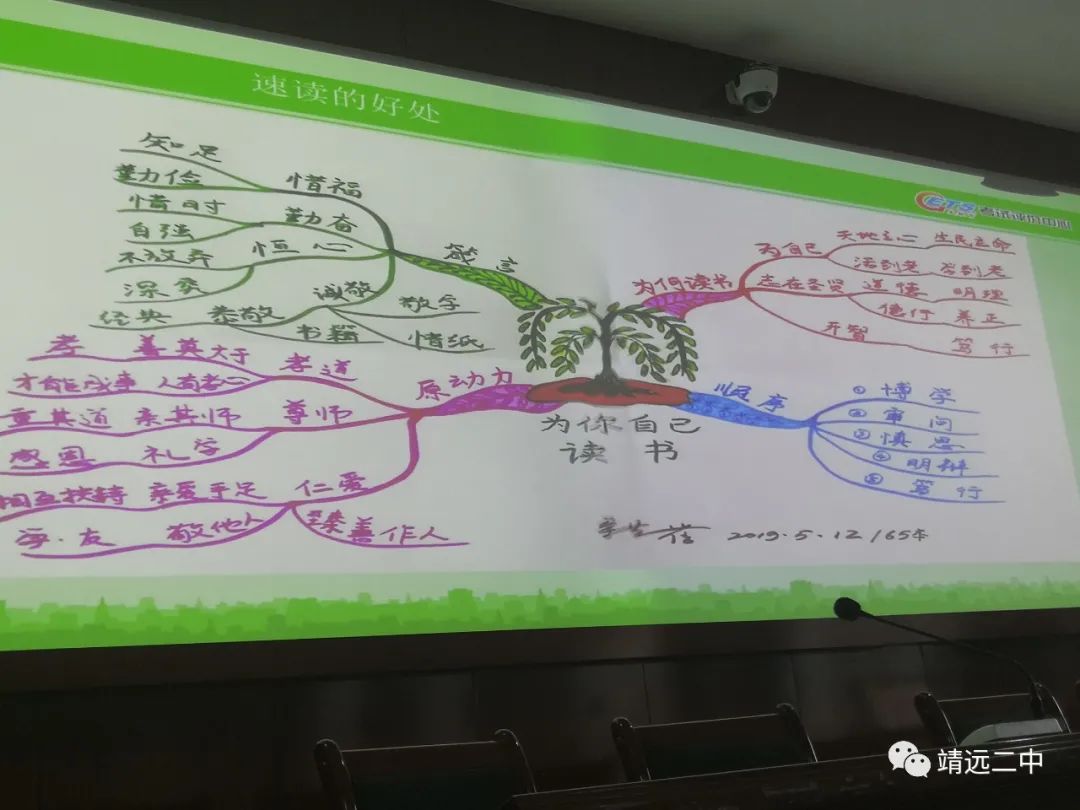 速读的好处
ETS 考试评价中心
知足
勤俭
惜福
惜时
自强
勤奋
不放弃
恒心
箴言
诚敬
经典 恭敬
书籍
敬字
惜纸
为何读书
为自己
天地立心 生民立命
活到老 学到老
志在圣贤 道德 明理
德行 养正
开智 笃行
孝 善莫大于
才能成事 人有孝心
孝道
原动力
重其道 亲其师 尊师
感恩 礼学
相互扶持 亲爱手足 仁爱
敬他人
臻善作人
顺序
① 博学
② 审问
③ 慎思
④ 明辩
⑤ 笃行
为你自己
读书
2019.5.12/65本
靖远二中